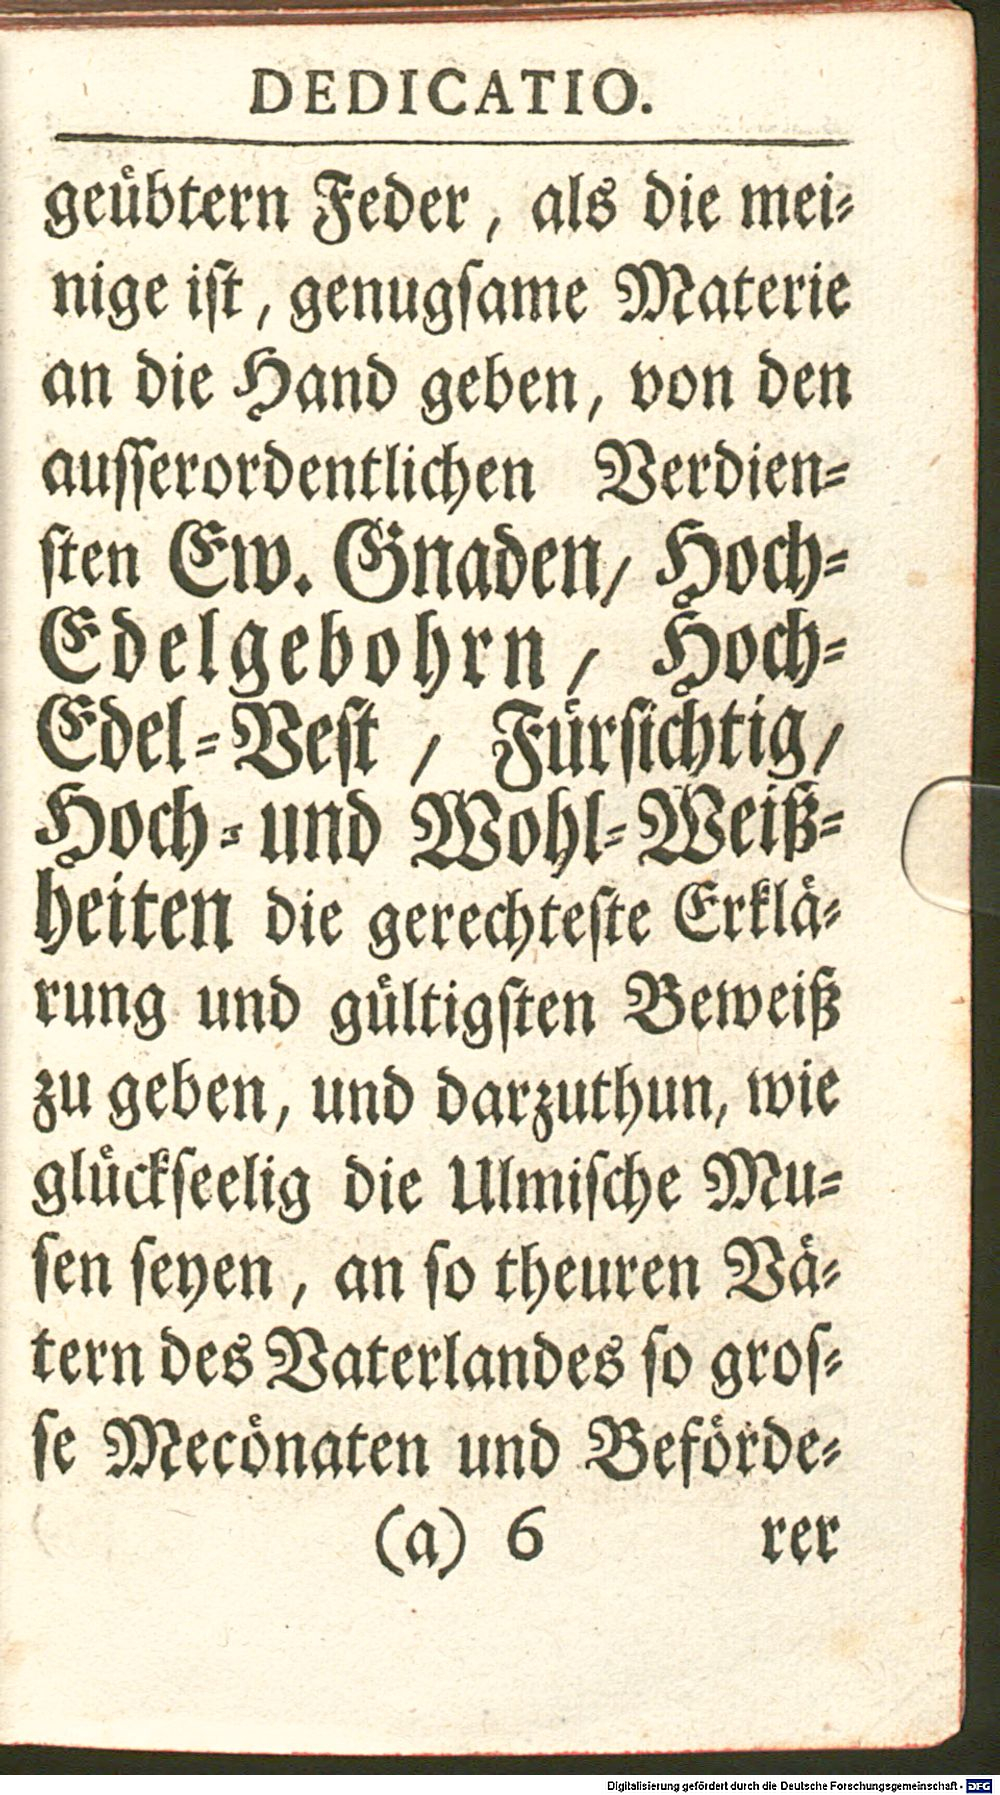 DEDICATIO.
geübtern Feder, als die mei-
nige ist, genugsame Materie
an die Hand geben, von den
ausserordentlichen Verdien-
sten Ew. Gnaden, Hoch-
Edelgebohrn, Hoch-
Edel-Vest, Fürsichtig,
Hoch- und Wohl-Weiß-
heiten die gerechteste Erklä-
rung und gültigsten Beweiß
zu geben, und darzuthun, wie
glückseelig die Ulmische Mu-
sen seyen, an so theuren Vä-
tern des Vaterlandes so gros-
se Mecönaten und Beförde-
(a) 6 rer
Digitalisierung gefördert durch die Deutsche Forschungsgemeinschaft - DFG